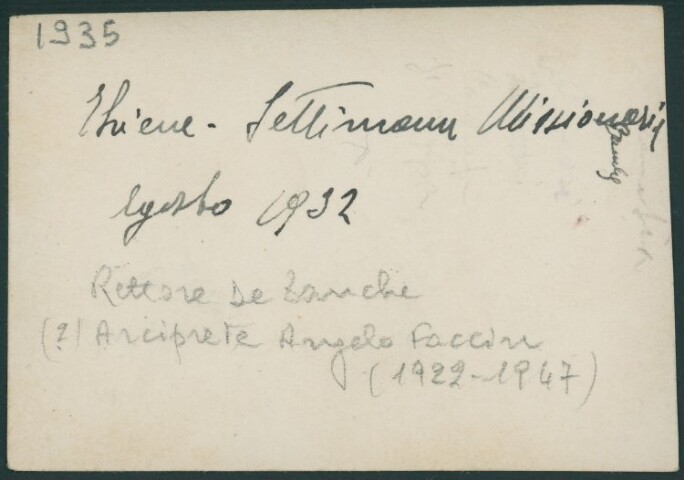 1935
Thiene - Settimana Missionaria
Agosto 1932
Rettore De Zanche
(?) Arciprete Angelo Faccin
(1922-1947)